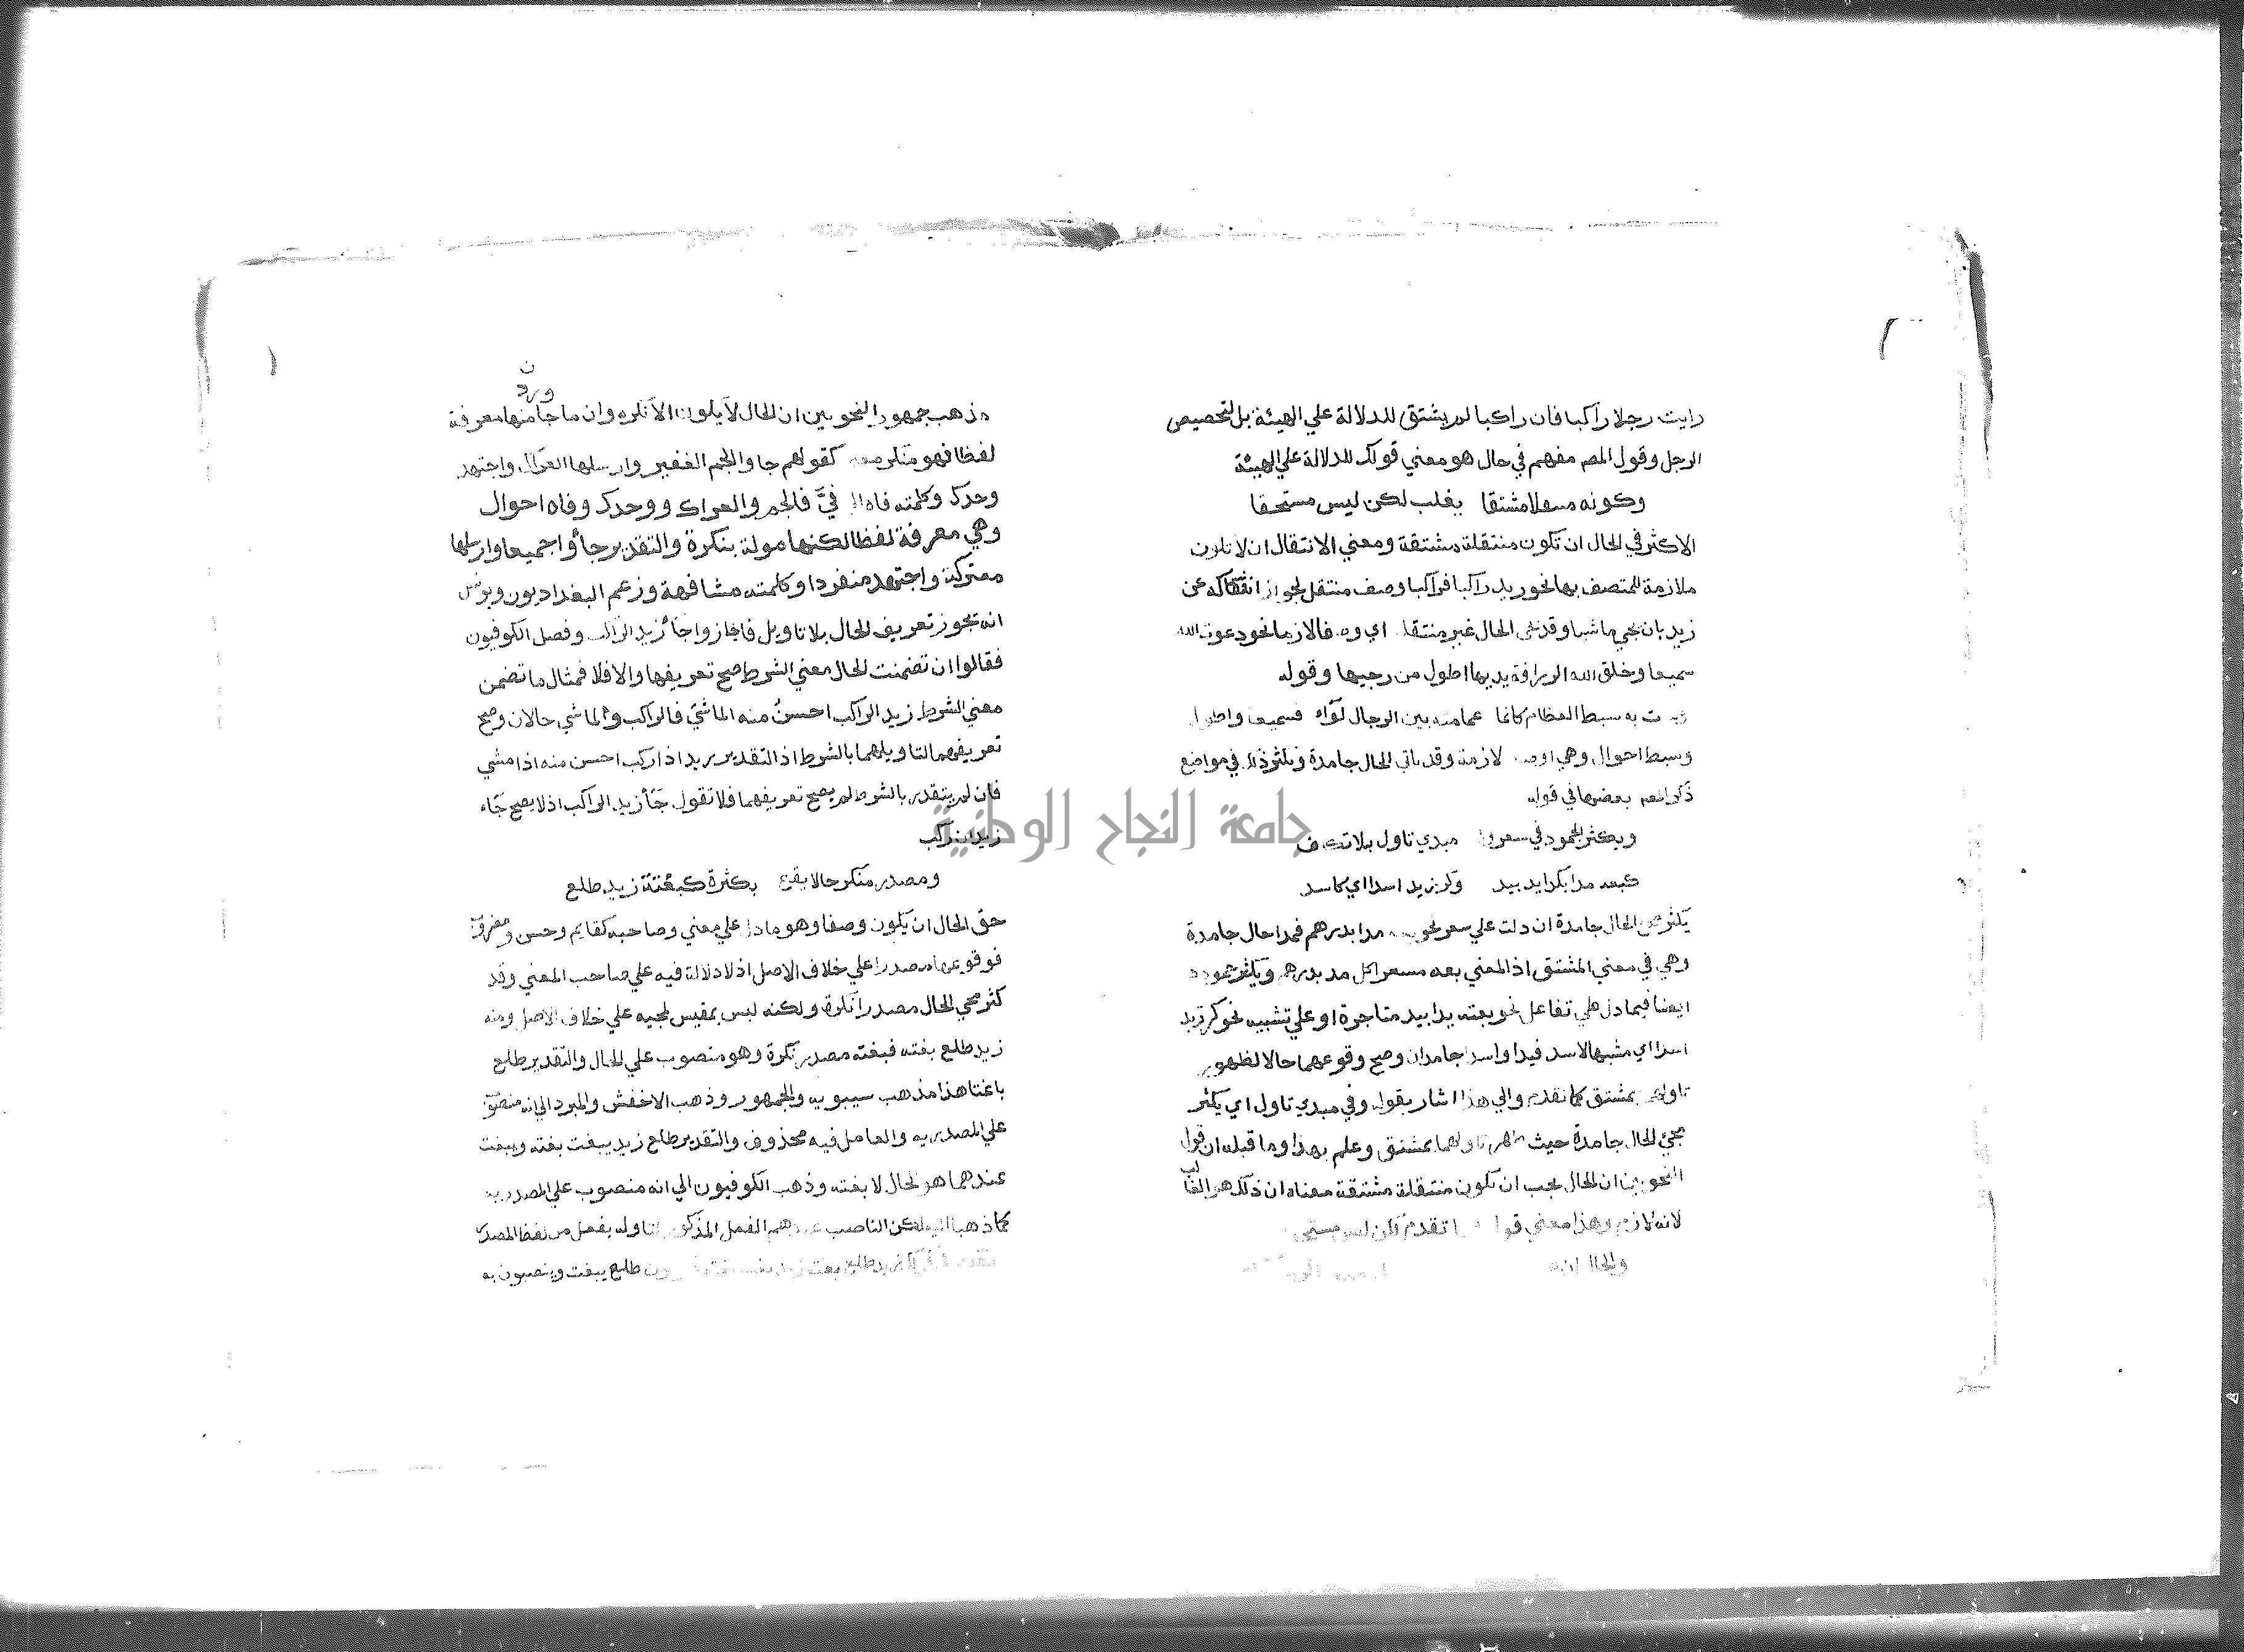 رايت رجلا راكبا فان راكبا لم يشتق للدلالة علي الهيئة بل لتخصيص
الرجل وقول المصـ مفهم في حال هو معني قولك للدلالة علي الهيئة
وكونه منتقلا مشتقا يغلب لكن ليس مستحقا
الاكثر في الحال ان تكون منتقلة مشتقة ومعني الانتقال ان لا تكون
ملازمة للمتصف بها نحو زيد راكبا فراكبا وصف منتقل لجواز انفكاكه عن
زيد بان يجي ماشيا وقد تجي الحال غير منتقلة اي لازما نحو دعوت الله
سميعا وخلق الله الزرافة يديها اطول من رجيها وقوله
به سبط العظام كانما عمامته بين الرجال لواء فسميعا واطول
وسبط احوال وهي اوصاف لازمة وقد تاتي الحال جامدة ويكثر ذلك في مواضع
ذكر المصـ بعضها في قوله
ويكثر الجمود في سعر وفي مبدي تاول بلا تكلف
كبعه مدا بكذا يد بيد وكر زيد اسدا اي كاسد
يكثر مجي الحال جامدة ان دلت علي سعر نحو بعه مدا بدرهم فمدا حال جامدة
وهي في معني المشتق اذ المعني بعه مسعرا كل مد بدرهم ويكثر جمودها
ايضا فيما دل علي تفاعل نحو بعته يدا بيد متاجرة او علي تشبيه نحو كر زيد
اسدا اي مشبها الاسد فيدا واسدا جامدان وصح وقوعهما حالا لظهور
تاولهما بمشتق كما تقدم والي هذا اشار بقوله وفي مبدي تاول اي يكثر
مجئ الحال جامدة حيث ظهر تاولها بمشتق وعلم بهذا وما قبله ان قول
النحويين ان الحال يجب ان تكون منتقلة مشتقة معناه ان ذلك هو الغالب
لانه لازم وهذا معني قوله تقدم لكن ليس مستحقا
والحال ان
ورد ن
مذهب جمهور النحويين ان الحال لا يكون الا نكره وان ما جا منها معرفة
لفظا فهو منكر معني كقولهم جاوا الجم الغفير وارسلها العراك واجتهد
وحدك وكلمته فاه الي فيّ فالجم والعراك ووحدك وفاه احوال
وهي معرفة لفظا لكنها مولة بنكرة والتقدير جاوا جميعا وارسلها
معتركة واجتهد منفردا وكلمته مشافهة وزعم البغداديون ويونس
انه يجوز تعريف الحال بلا تاويل فاجازوا جاء زيد الراكب وفصل الكوفيون
فقالوا ان تضمنت الحال معني الشرط صح تعريفها والا فلا فمثال ما تضمن
معني الشرط زيد الراكب احسن منه الماشي فالراكب والماشي حالان وصح
تعريفهما لتاويلهما بالشرط اذ التقدير زيد اذا ركب احسن منه اذا مشي
فان لم يتقدر بالشرط لم يصح تعريفهما فلا تقول جاء زيد الراكب اذ لا يصح جاء
زيد ان ركب
ومصدر منكر حالا يقع بكثرة كبغتة زيد طلع
حق الحال ان يكون وصفا وهو ما دل علي معني وصاحبه كقايم وحسن ومضروب
فوقوعها مصدرا علي خلاف الاصل اذ لا دلالة فيه علي صاحب المعني وقد
كثر مجي الحال مصدرا نكرة ولكنه ليس بمقيس لمجيه علي خلاف الاصل ومنه
زيد طلع بغته فبغته مصدر نكرة وهو منصوب علي الحال والتقدير طلع
باغتا هذا مذهب سيبويه والجمهور وذهب الاخفش والمبرد الي انه منصوب
علي المصدريه والعامل فيه محذوف والتقدير طلع زيد يبغت بغته ويبغت
عندهما هو الحال لا بغته وذهب الكوفيون الي انه منصوب علي المصدريه
كما ذهبا اليه لكن الناصب عندهم الفعل المذكور لتاوله بفعل من لفظ المصدر
زيد طلع بغته طلع يبغت وينصبون به
جامعة النجاح الوطنية